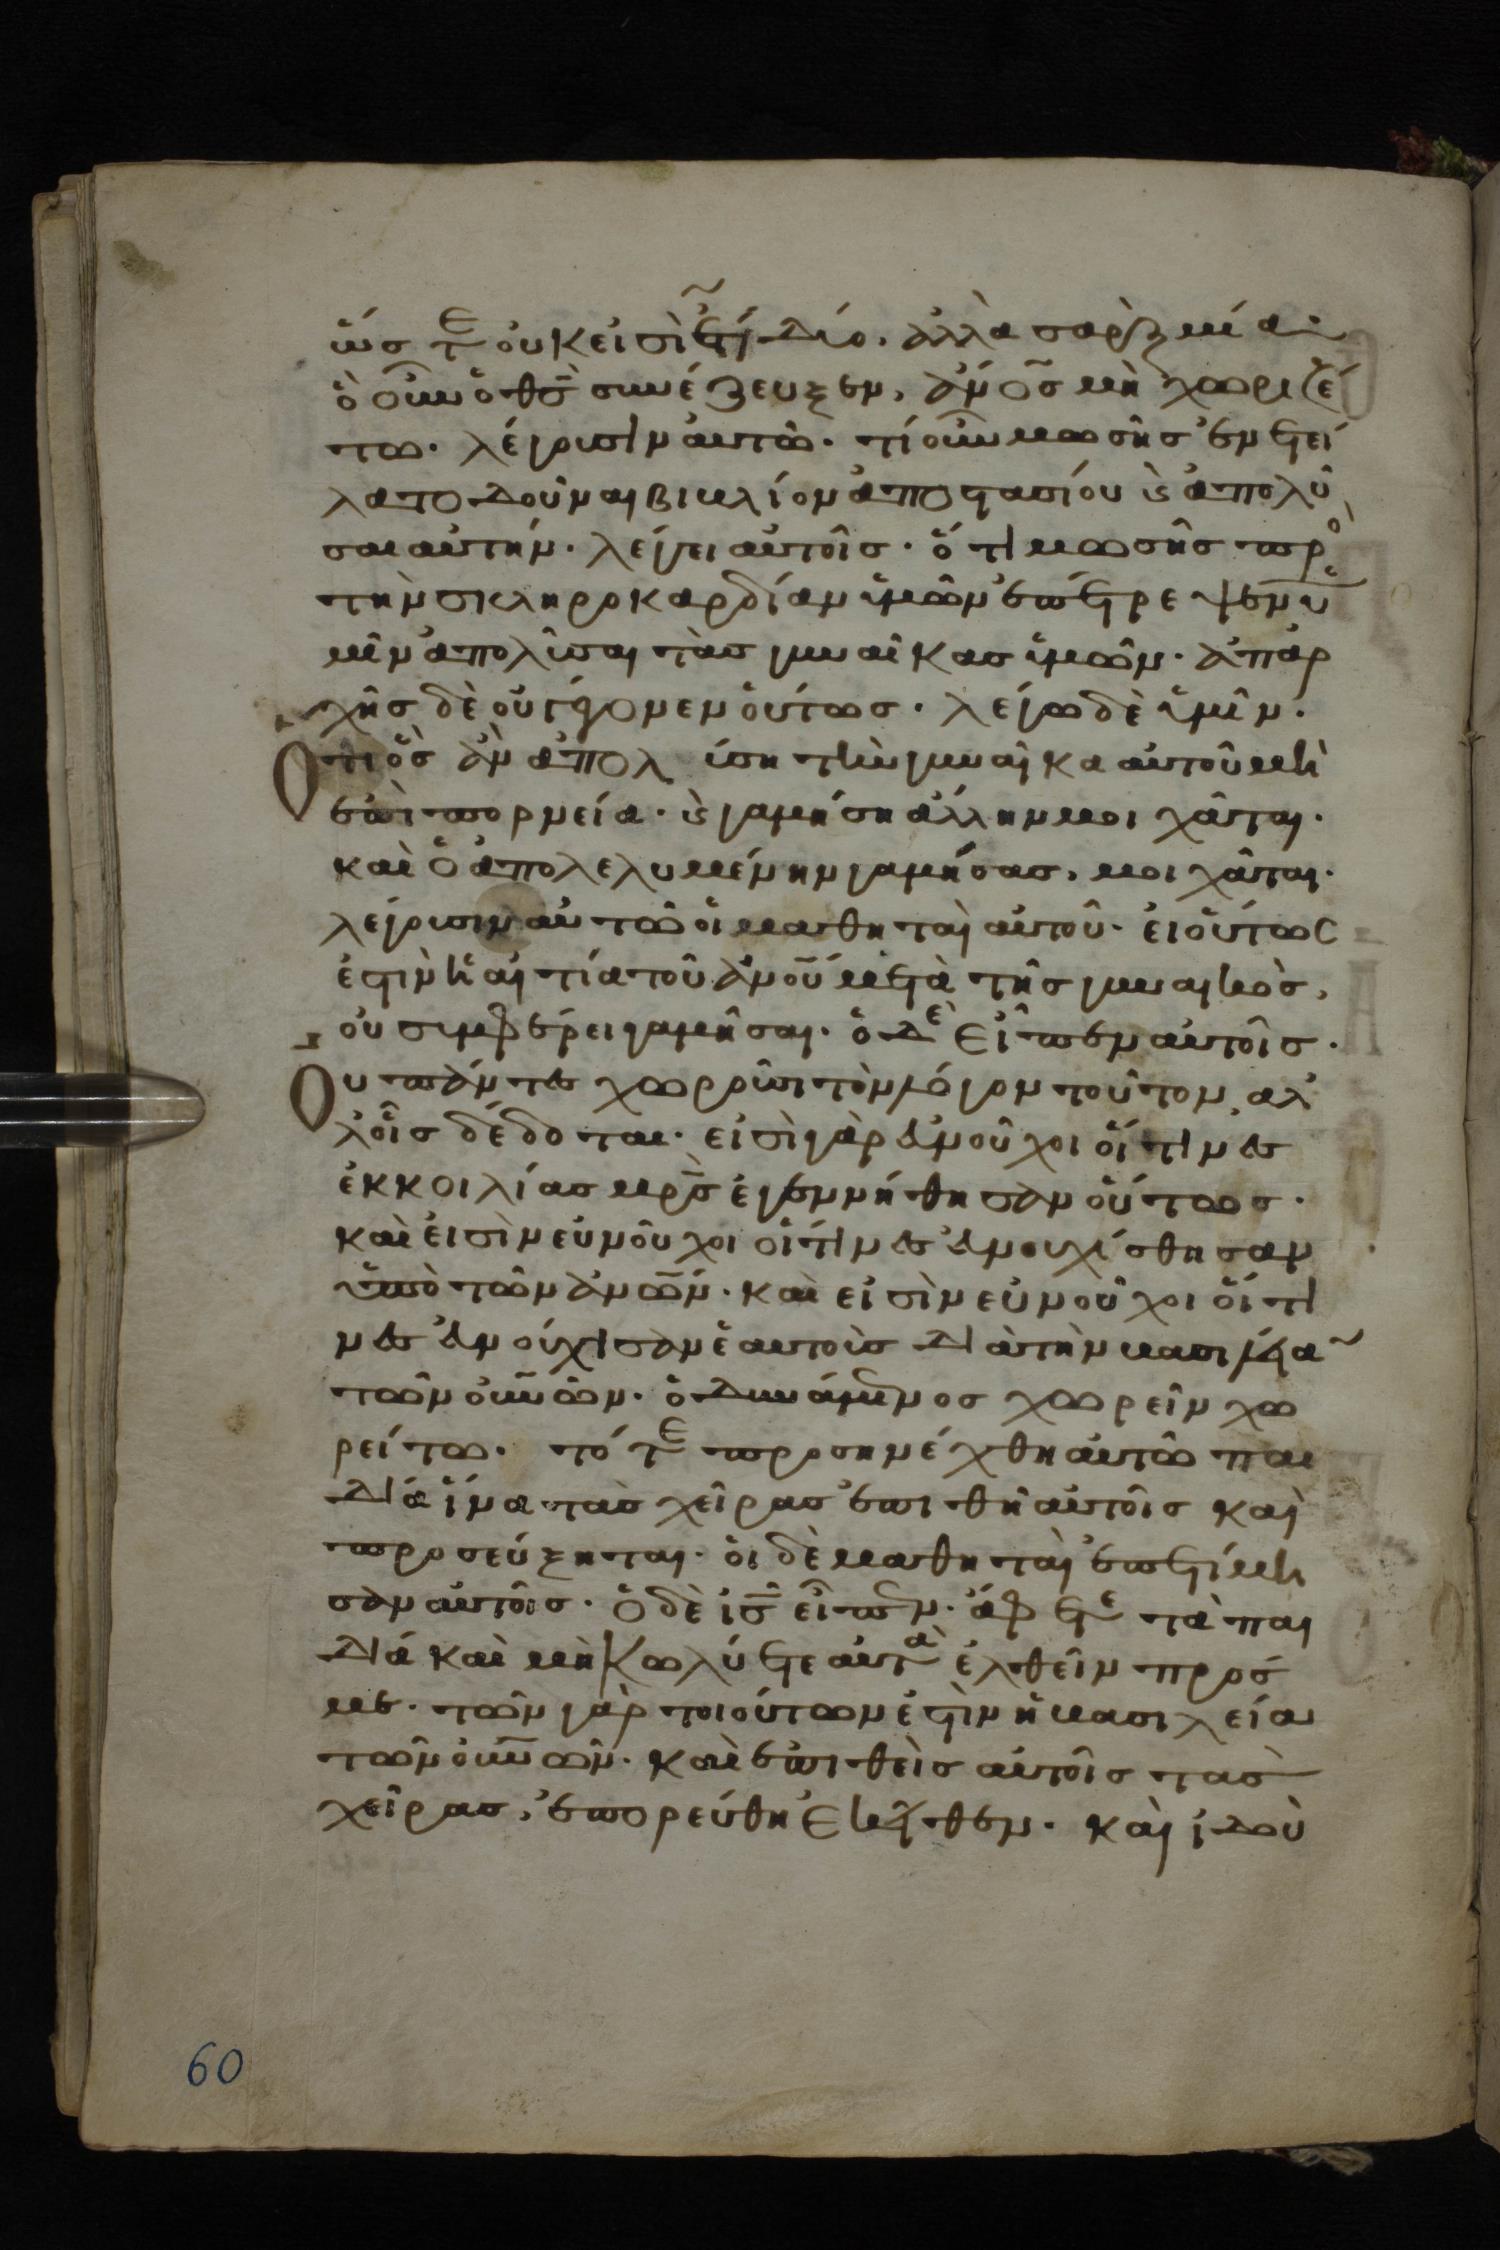 ὥστε οὐκ εἰσὶ ἔτι δύο. ἀλλὰ σὰρξ μία.
ὃ οὖν ὁ θς συνέζευξεν, ἄνος μὴ χωριζέ
τω. λέγουσιν αὐτῶ. τί οὖν μωσῆς ἐνετεί
λατο δοῦναι βιβλίον ἀποστασίου καὶ ἀπολῦ
σαι αὐτήν. λέγει αὐτοῖς. ὅτι μωσῆς πρὸς
τὴν σκληροκαρδίαν ὑμῶν ἐπέτρεψεν ὑ
μῖν ἀπολῦσαι τὰς γυναῖκας ὑμῶν. ἀπαρ
χῆς δὲ οὐ γέγονεν οὕτως. λέγω δὲ ὑμῖν.
Ὅτι ὃς ἂν ἀπολύση τὴν γυναῖκα αὐτοῦ μὴ
ἐπὶ πορνεία. καὶ γαμήση ἄλλην μοιχᾶται.
καὶ ὁ ἀπολελυμένην γαμήσας, μοιχᾶται.
λέγουσιν αὐτῶ οἱ μαθηταὶ αὐτοῦ. εἰ οὕτως
ἐστὶν ἡ αἰτία τοῦ ἀνοῦ μετὰ τῆς γυναικὸς,
οὐ συμφέρει γαμῆσαι. ὁ δὲ εἶπεν αὐτοῖς.
Οὐ πάντες χωροῦσι τὸν λόγον τοῦτον, ἀλ
λ' οἷς δέδοται. εἰσὶ γὰρ εὐνοῦχοι οἵτινες
ἐκ κοιλίας μρς ἐγεννήθησαν οὕτως.
καὶ εἰσὶν εὐνοῦχοι οἵτινες εὐνουχίσθησαν
ὑπὸ τῶν ἀνων. καὶ εἰσὶν εὐνοῦχοι οἵτι
νες εὐνούχισαν ἑαυτοὺς διὰ τὴν βασιλεία
τῶν οὐνῶν. ὁ δυνάμενος χωρεῖν χω
ρείτω. τότε προσηνέχθη αὐτῶ παι
δία ἵνα τὰς χεῖρας ἐπιθῆ αὐτοῖς καὶ
προσεύξηται. οἱ δὲ μαθηταὶ ἐπετίμη
σαν αὐτοῖς. ὁ δὲ ις εἶπεν. ἄφετε τὰ παι
δία καὶ μὴ κωλύετε αὐτὰ ἐλθεῖν πρός
με. τῶν γὰρ τοιούτων ἐστὶν ἡ βασιλεία
τῶν οὐνῶν. καὶ ἐπιθεὶς αὐτοῖς τὰς
χεῖρας, ἐπορεύθη ἐκεῖθεν. καὶ ἰδοὺ
60